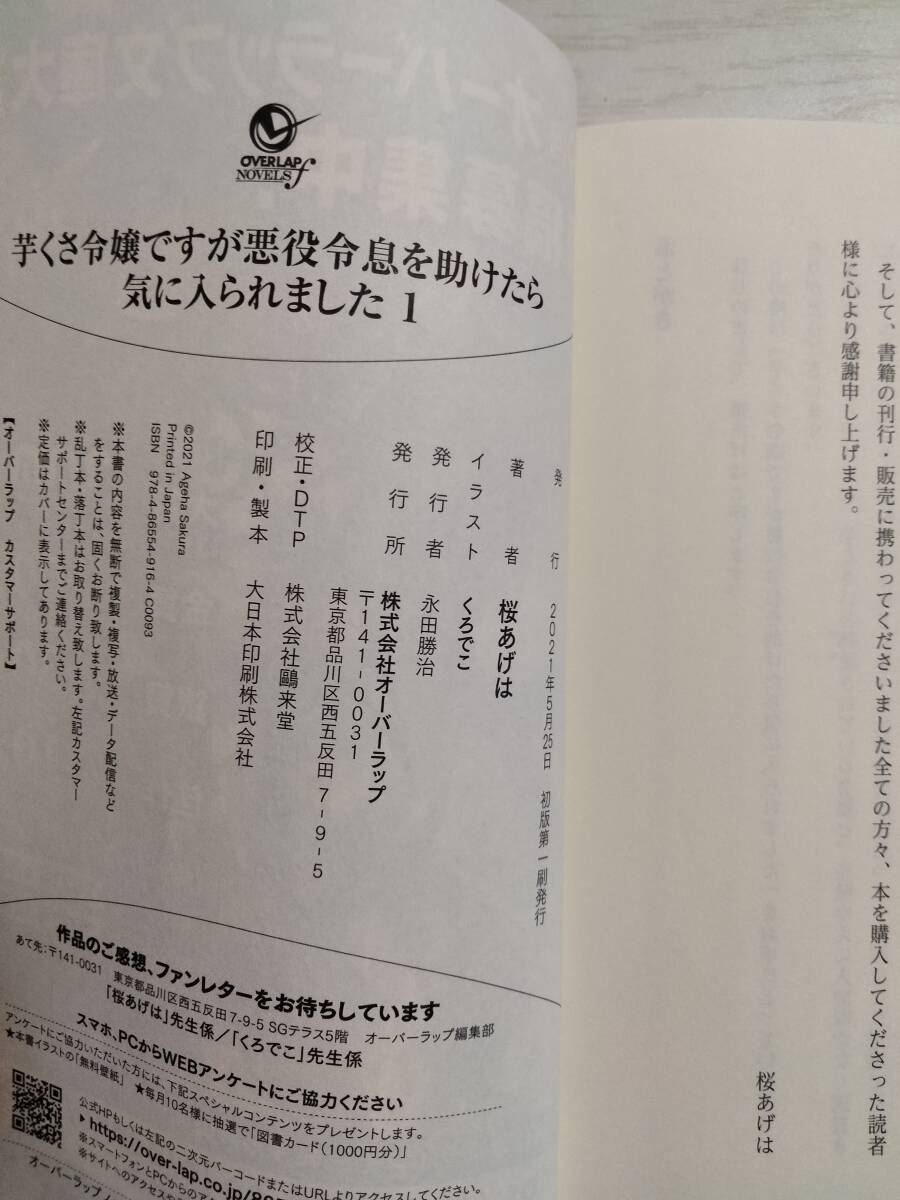 そして、書籍の刊行・販売に携わってくださいました全ての方々、本を購入してくださった読者
様に心より感謝申し上げます。
桜あげは
OVERLAP
NOVELS f
芋くさ令嬢ですが悪役令息を助けたら
気に入られました 1
発行 2021年5月25日 初版第一刷発行
著者 桜あげは
イラスト くろでこ
発行者 永田勝治
発行所 株式会社オーバーラップ
〒141-0031
東京都品川区西五反田 7-9-5
校正・DTP 株式会社鷗来堂
印刷・製本 大日本印刷株式会社
©2021 Ageha Sakura
Printed in Japan
ISBN 978-4-86554-916-4 C0093
※本書の内容を無断で複製・複写・放送・データ配信など
をすることは、固くお断り致します。
※乱丁本・落丁本はお取り替え致します。左記カスタマー
サポートセンターまでご連絡ください。
※定価はカバーに表示してあります。
【オーバーラップ カスタマーサポート】
作品のご感想、ファンレターをお待ちしています
あて先:〒141-0031 東京都品川区西五反田7-9-5 SGテラス5階 オーバーラップ編集部
「桜あげは」先生係/「くろでこ」先生係
スマホ、PCからWEBアンケートにご協力ください
アンケートにご協力いただいた方には、下記スペシャルコンテンツをプレゼントします。
★本書イラストの「無料壁紙」 ★毎月10名様に抽選で「図書カード(1000円分)」
公式HPもしくは左記の二次元バーコードまたはURLよりアクセスしてください。
▶https://over-lap.co.jp/865
※スマートフォンとPCからの
※サイトへのアクセスや
オーバーラップ